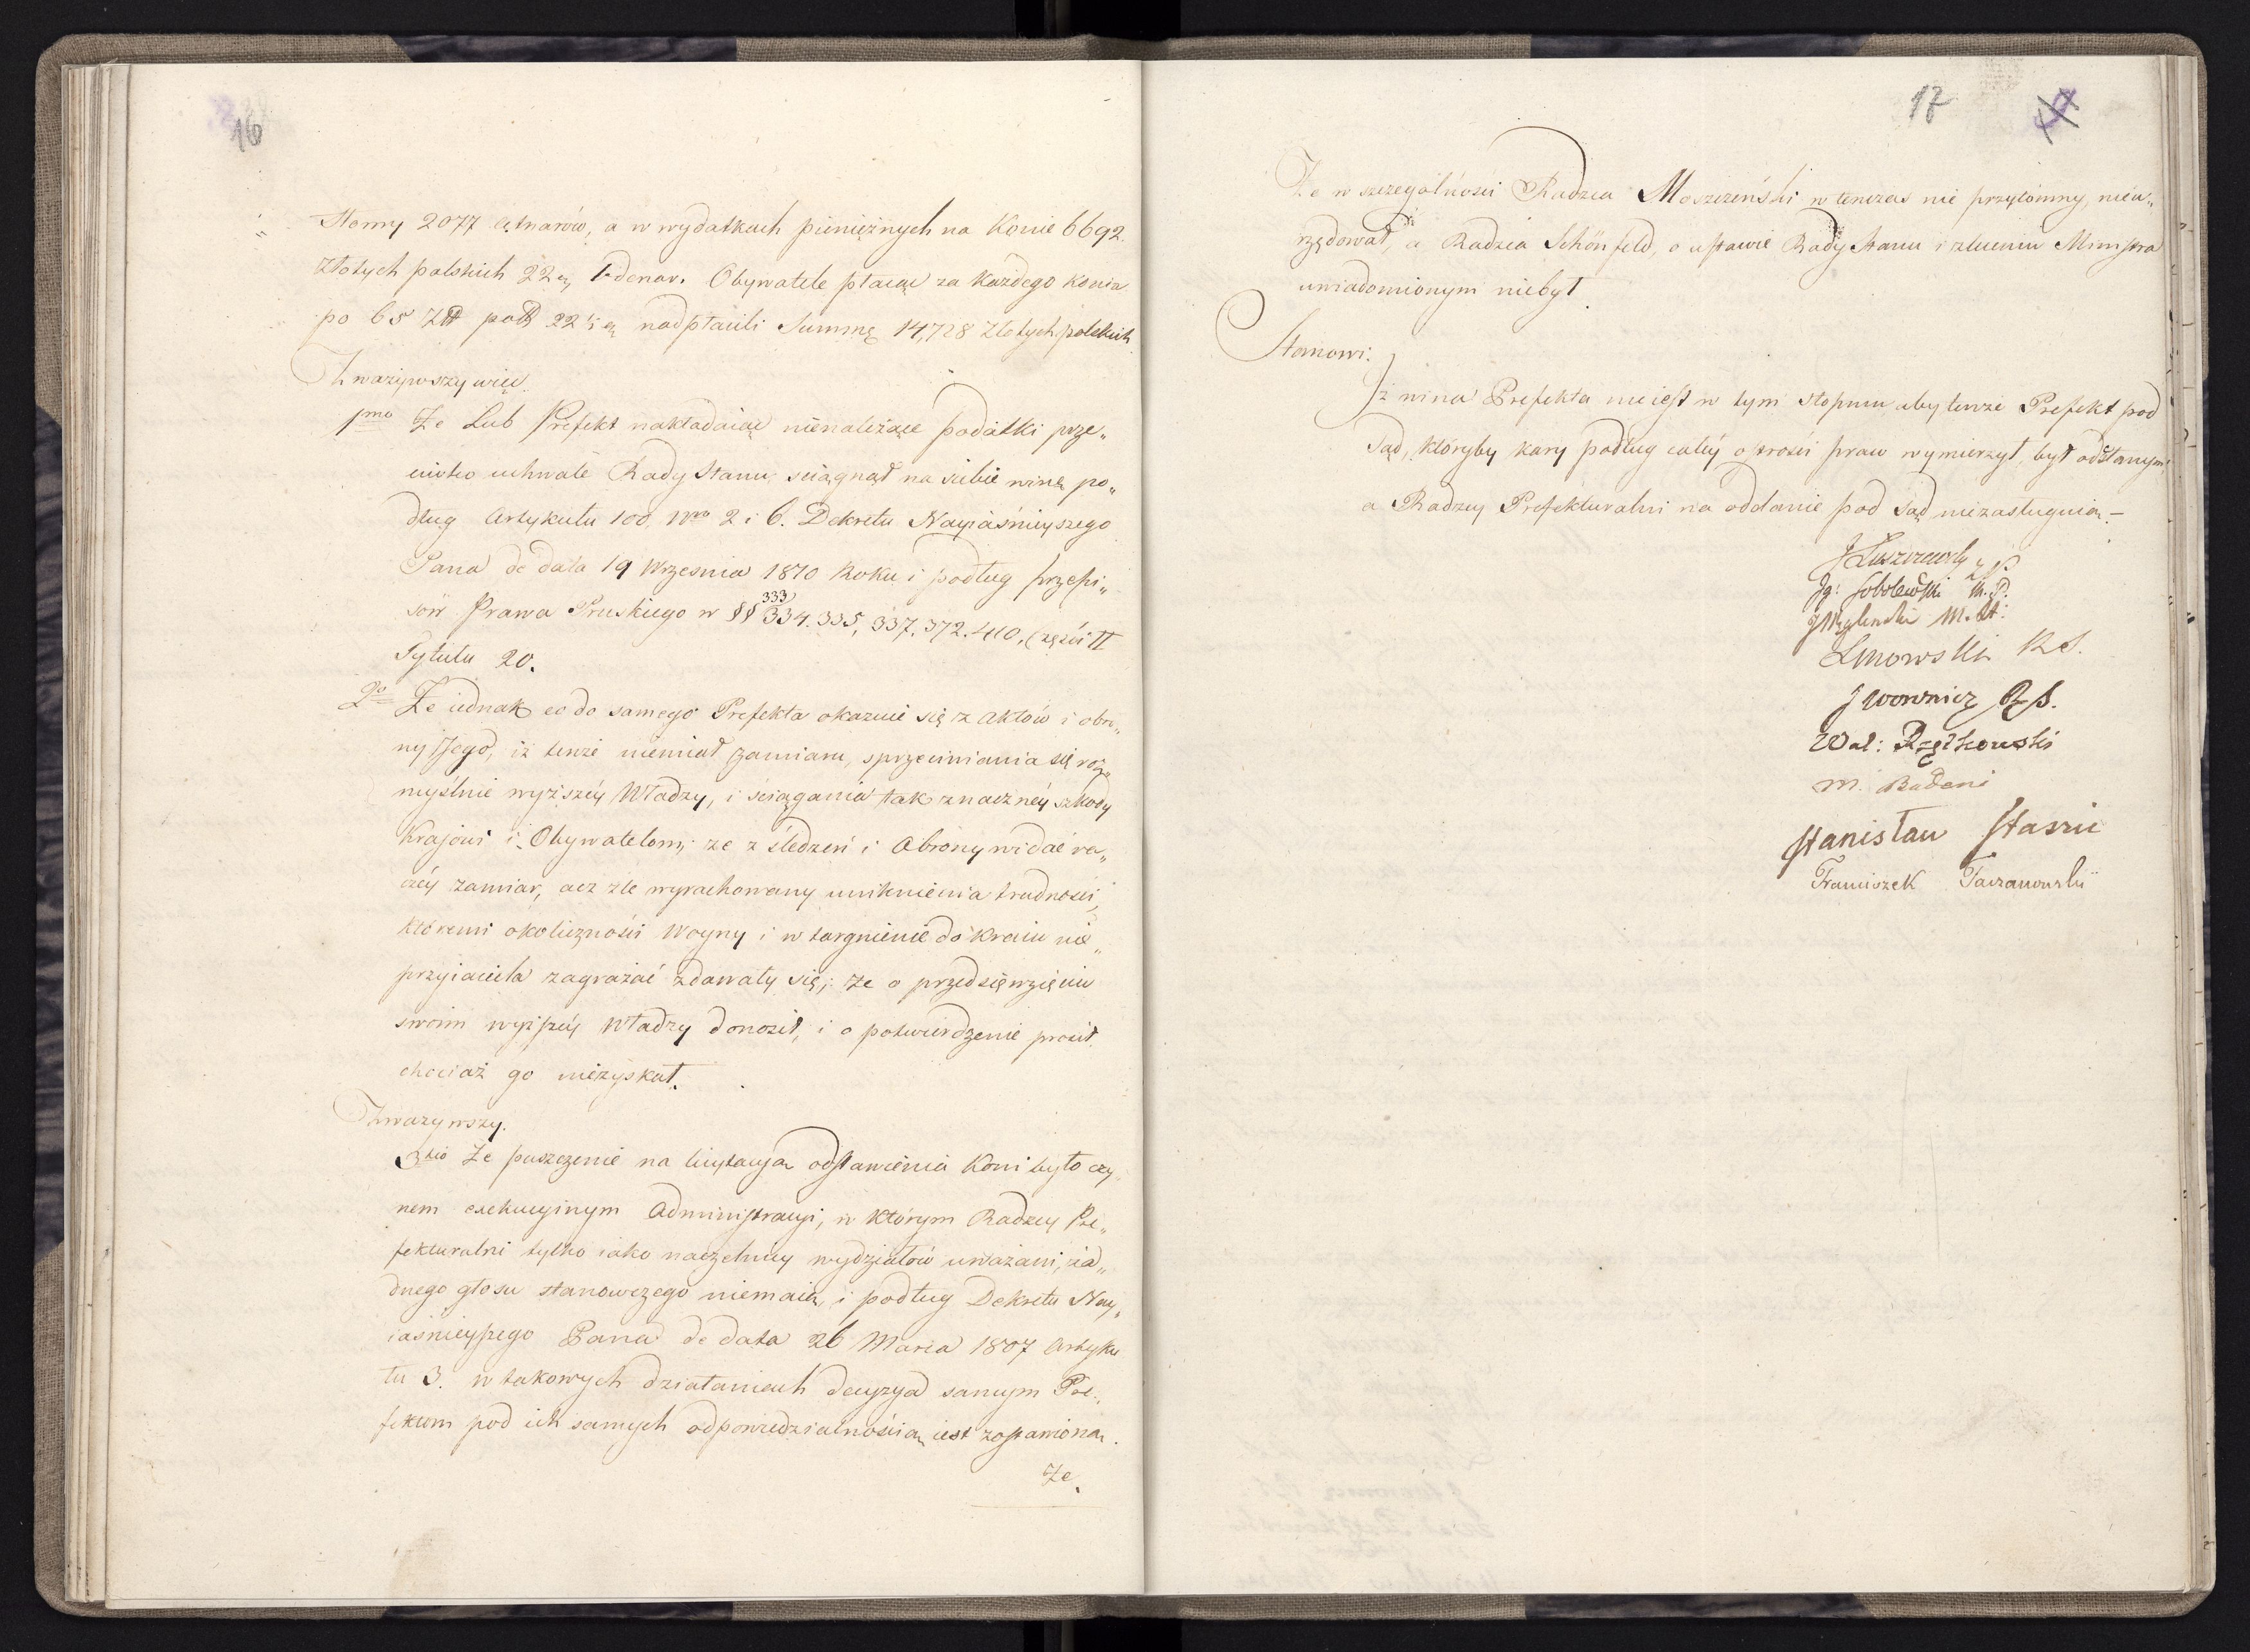 16
Słomy 2077 cętnarów, a w wydatkach pieniężnych na Konie 6692.
Złotych polskich 22 1 denar. Obywatele płacąc za każdego konia
po 65 22 nadpłacili Summę 14,728 Złotych polskich
Zważywszy więc.
1mo Że Lub Prefekt nakładaiąc nienależące podatki prze„
ciwko uchwale Rady Stanu, sciągnął na siebie winę po„
dług Artykułu 100, Nro 2 i 6. Dekretu Nayiaśnieyszego
Pana de data 19 Wrzesnia 1810 Roku i podług przepi„
sów Prawa Pruskiego w §§ 333 334. 335, 337. 372. 410, Części II
Tytułu 20.
2do Że iednak co do samego Prefekta okazuie się z Aktów i obro„
ny Jego, iż tenże niemiał zamiaru, sprzeciwiania się roz„
myślnie wyższéy Władzy, i ściągania tak znacznéy szkody
Krajowi i Obywatelom; ze z śledzeń i Obrony widać ra„
czéy zamiar, acz źle wyrachowany uniknienia trudności,
któremi okoliczności Woyny i wtargnienie do kraiu nie„
przyiaciela zagrażać zdawały się; że o przedsięwzięciu
swoim wyższéy Władzy donosił, i o potwierdzenie prosił.
chociaż go niezyskał.
Zważywszy.
3tio Że puszczenie na licytacyą odstawienia Koni było czy„
nem exekucyinym Administracyi, w którym Radzcy Pre„
fekturalni tylko iako naczelnicy wydziałów uważani, żad„
dnego głosu stanowczego niemaią, i podług Dekretu Nay„
iaśnieyszego Pana de data 26 Marca 1807 Artyku
łu 3. w takowych działaniach decyzya samym Pre„
fektom pod ich samych odpowiedzialnością iest zostawiona.
Że.
17
Że w szczególności Radzca Moszczeński w tenczas nie przytomny, nieu„
rzędował, a Radzca Schönfeld, o ustawie Rady Stanu i zleceniu Ministra
uwiadomionym niebył.
Stanowi:
Iż wina Prefekta nieiest w tym stopniu, aby tenże Prefekt pod
Sąd, któryby kary podług całéy ostrości praw wymierzył, był odesłanym,
a Radzcy Prefekturalni na oddanie pod Sąd niezasługuią. –
J Łuszczewski
Ig: Sobolewski M. P.
J Węgleński M. St:
Linowski R S.
J Woronicz R S.
Wal: Rzętkowski
M. Badeni
Stanisław Staszic
Franciszek Taczanowski